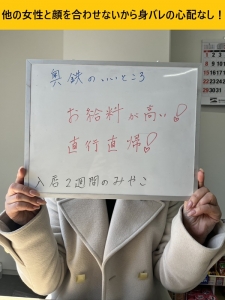 他の女性と顔を合わせないから身バレの心配なし！
奥鉄のいいところ
お給料が高い！
直行直帰！
入店2週間のみやこ